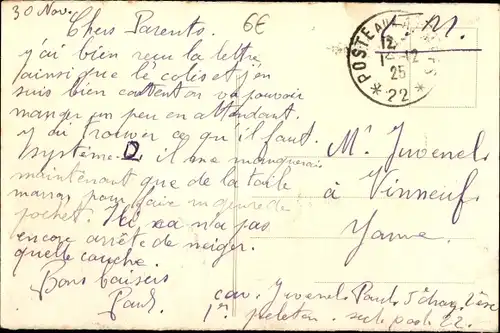 30 Nov.
6€
F.M.
Chers Parents.
j'ai bien reçu la lettre
ainsi que le colis et j'en
suis bien content on va pouvoir
manger un peu en attendant.
j'ai trouver ce qu'il faut.
Système D il me manquerais
maintenant que de la toile
pour faire
pochet. Ici ça n'a pas
encore arrête de neiger.
quelle couche.
Bons baisers
Paul.
POSTE AUX ARMÉES
12
1-12
25
* 22 *
Mr Juvenel
à Vinneuf
Yonne
cav. Juvenel Paul 5e
1er peloton. sect post 22.